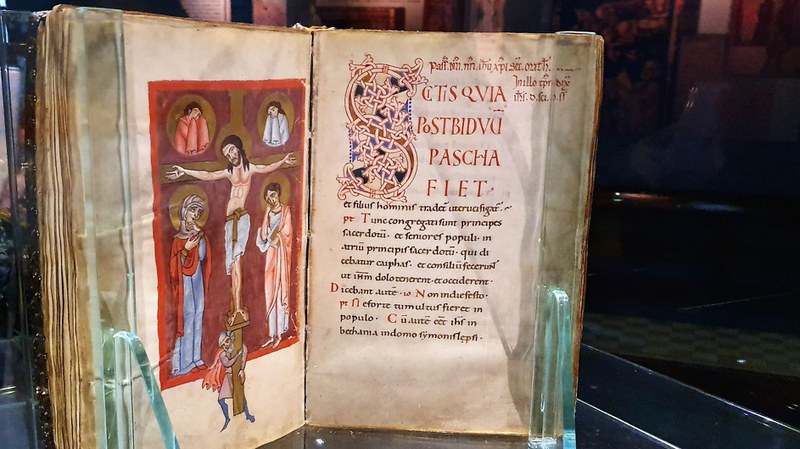 Pass̄. dn̄i. nr̄i. ihū xp̄i Sec̄. math̄.
In illo tp̄r. dix̄
ih̄s. d. sc̄i. s.
SCTIS QVIA
POST BIDVŪ
PASCHA
FIET.
et filius hominis tradet̄ ut crucifiget̄.
pt Tunc congregati sunt principes
sacerdotū. et seniores populi. in
atriū principis sacerdotū. qui di
cebatur caiphas. et consiliū fecerunt
ut ih̄m dolo tenerent. et occiderent.
Dicebant autē. io Non in die festo.
pt Si e forte tumultus fieret in
populo. Cū autē eēt ih̄s in
bethania in domo symonis lep̄si.